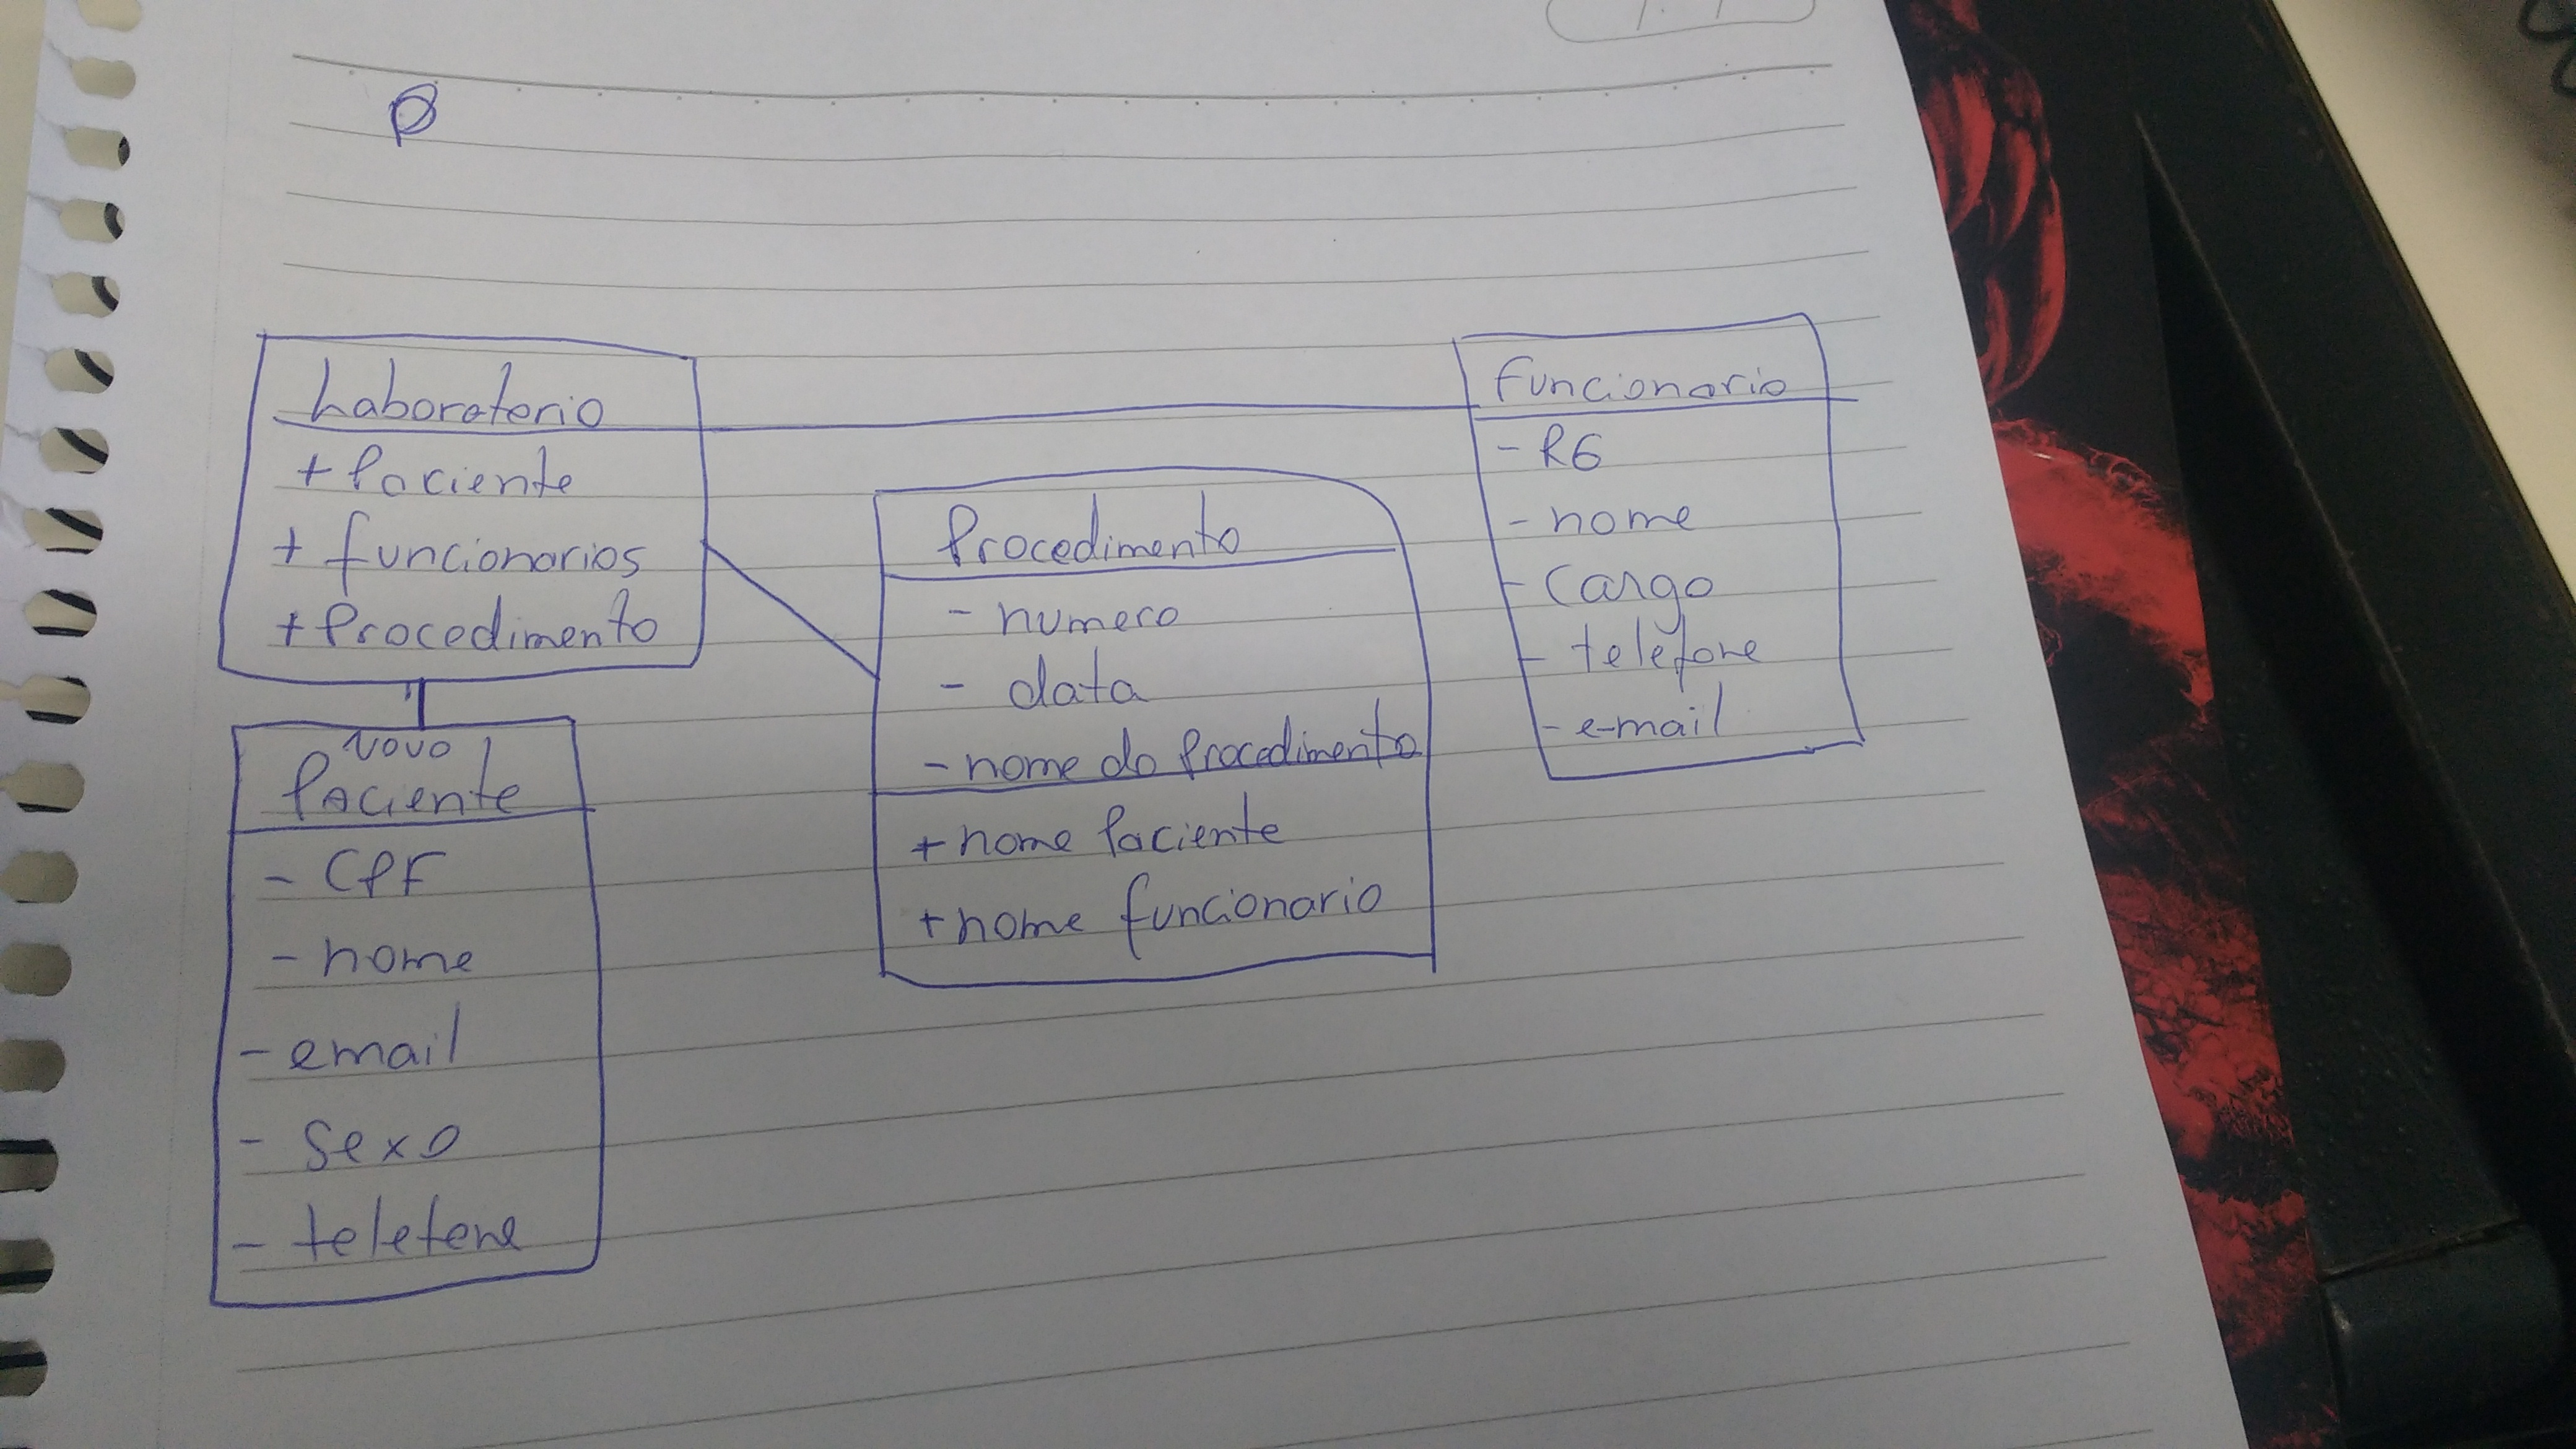 Laboratorio
+ Paciente
+ funcionarios
+ Procedimento
novo
Paciente
- CPF
- nome
- email
- sexo
- telefone
Procedimento
- numero
- data
- nome do Procedimento
+ nome Paciente
+ nome funcionario
funcionario
- RG
- nome
- Cargo
- telefone
- e-mail